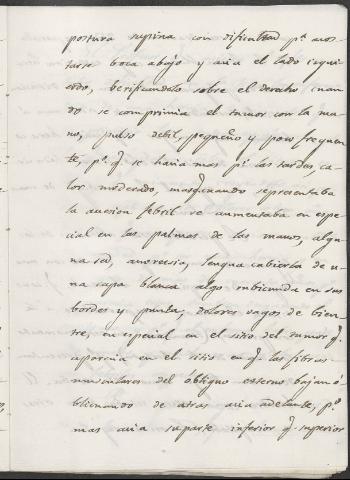 postura supina con dificultad pª acos-
tarse boca abajo y acia el lado izqui-
erdo, berificandolo sobre el derecho cuan-
do se comprimia el tumor con la ma-
no, pulso debil, pequeño y poco frequen-
te, pº q.e se hacia mas pr las tardes, ca-
lor moderado, mas quando se presentaba
la accesion febril se aumentaba en espe-
cial en las palmas de las manos, algu-
na sed, anorexia, lengua cubierta de u-
na capa blanca algo rubicunda en sus
bordes y punta, dolores vagos de bien-
tre, en especial en el sitio del tumor q.
aparecia en el sitio en q. las fibras
musculares del óbliquo esterno bajan ó
blicuando de atras acia adelante, pº
mas acia su parte inferior q. superior